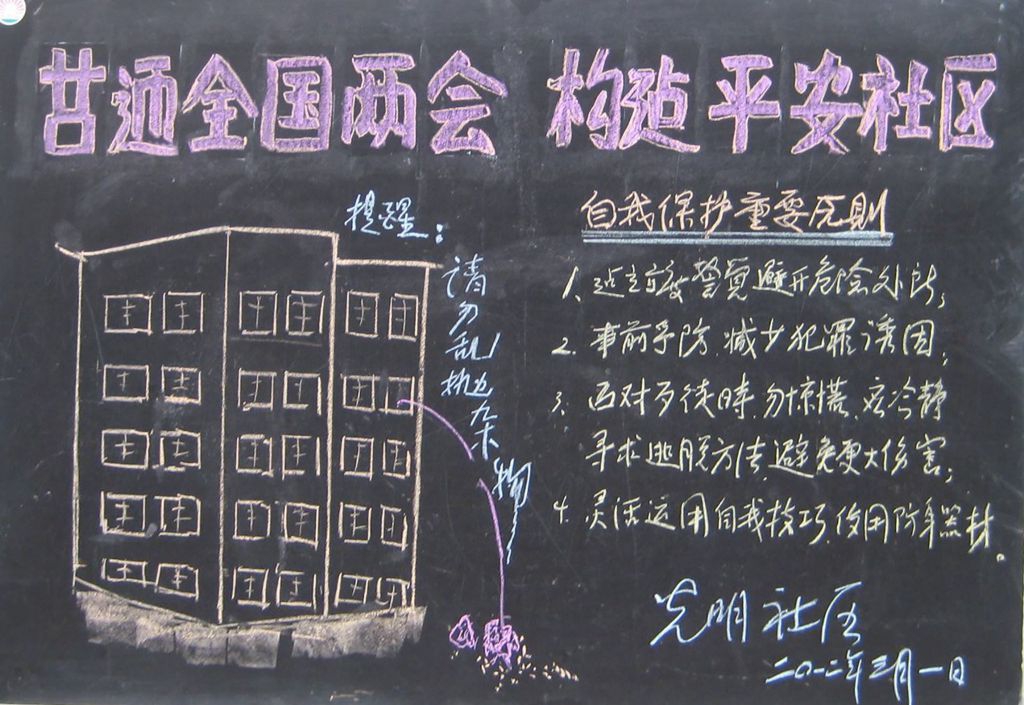 喜迎全国两会 构造平安社区
提醒：
请勿乱抛杂物
自我保护重要原则
1. 建立 警觉避开危险处所；
2. 事前予防 减少犯罪诱因；
3. 面对歹徒時勿惊慌，应冷静
寻求逃脱方法避免更大伤害；
4. 灵活运用自我技巧，使用防身器材。
光明社区
二〇一二年三月一日